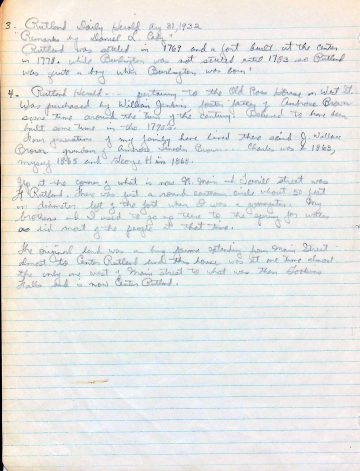 3. Rutland Daily Herald Aug 31, 1932
"Remarks by Daniel L. Cady"
Rutland was settled in 1769 and a fort built at the center
in 1778, while Burlington was not settled until 1783 so Rutland
was quite a boy when Burlington was born"
4. Rutland Herald --- pertaining to the Old Ross House on West St.
Was purchased by William Jenkins foster father of Andrew Brown
some time around the turn of the century. Believed to have been
built some time in the 1790's.
Four generations of my family have lived there said J. Wallace
Brown grandson of Andrew Brown. Charles was b 1863,
myself 1865 and George H in 1868.
Up at the corner of what is now N. Main and Terrill Street was
Ft Rutland. There was but a round earthen circle about 50 feet
in diameter left of the fort when I was a youngster. My
brothers and I used to go up there to the spring for water
as did most of the people at that time.
The original land was a big farm extending from Main Street
almost to Center Rutland and this house was at one time almost
the only one west of Main Street to what was then Gookins
Falls and is now Center Rutland.